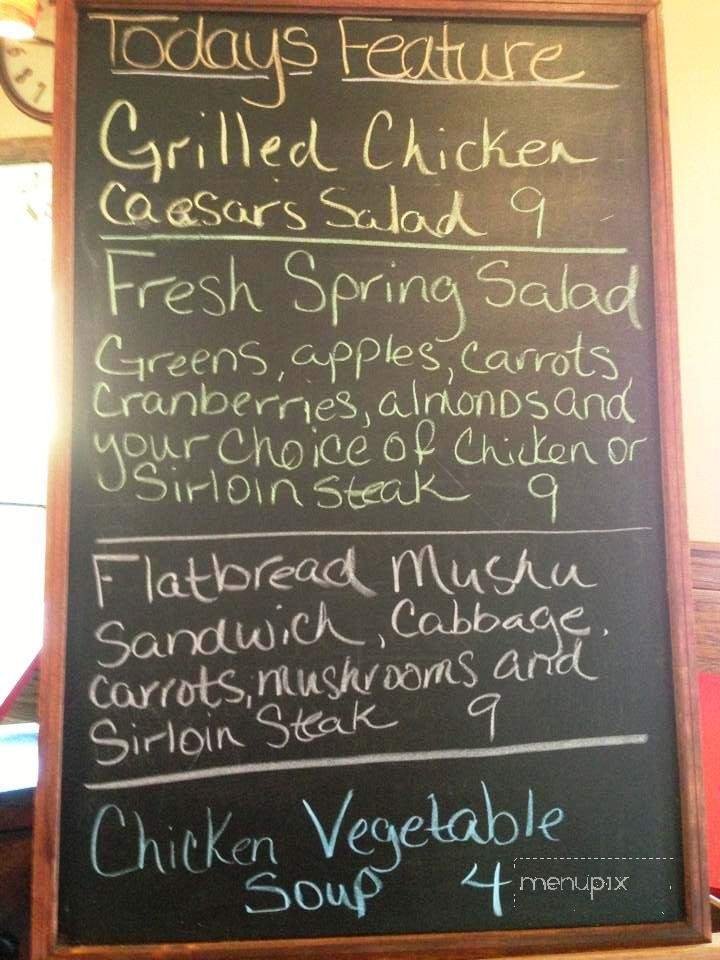 Todays Feature
Grilled Chicken
Caesars Salad 9
Fresh Spring Salad
Greens, apples, carrots
Cranberries, almonds and
your choice of Chicken or
Sirloin Steak 9
Flatbread Mushu
Sandwich, Cabbage,
carrots, mushrooms and
Sirloin Steak 9
Chicken Vegetable
Soup 4
menupix
8
7